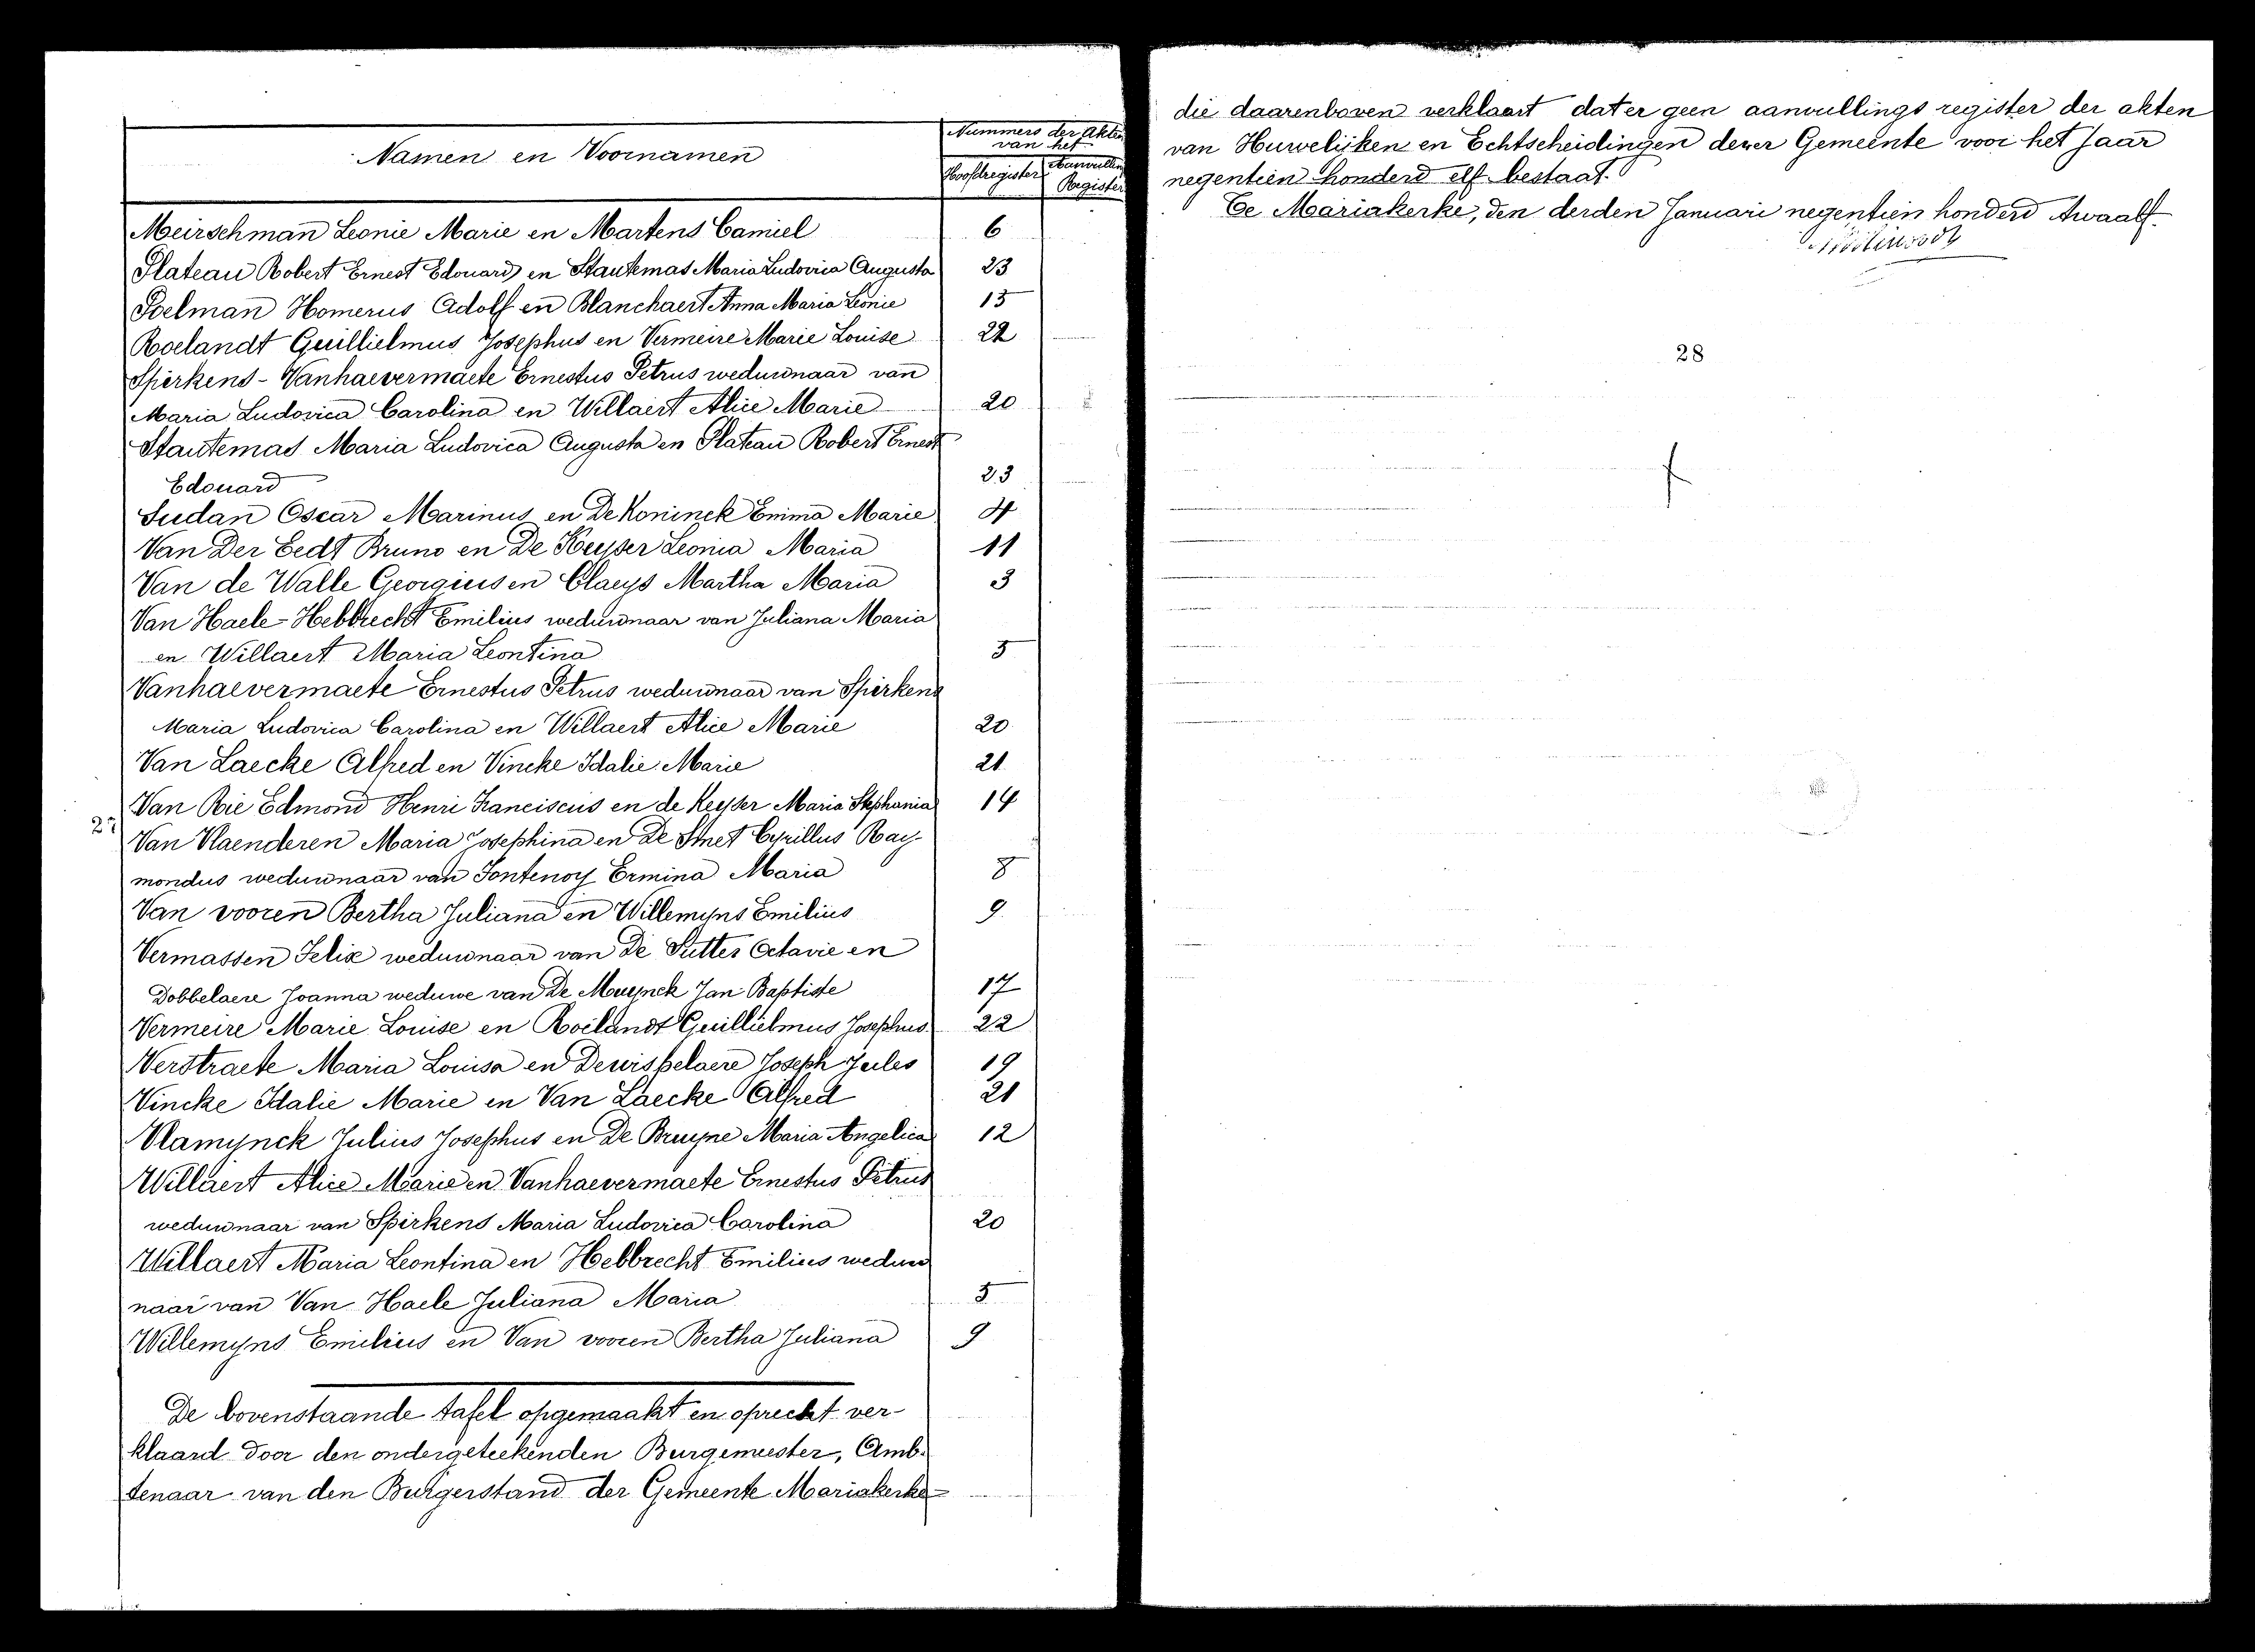 Namen en Voornamen
Nummers der Akten
van het
Hoofdregister
Aanvullin
Register
Meirschman Leonie Marie en Martens Camiel 6
Plateau Robert Ernest Edouard en Stautemas Maria Ludovica Augusta 23
Poelman Homerus Adolf en Blanchaert Anna Maria Leonie 15
Roelandt Guillielmus Josephus en Vermeire Marie Louise 22
Spirkens - Vanhaevermaete Ernestus Petrus weduwnaar van
Maria Ludovica Carolina en Willaert Alice Marie 20
Stautemas Maria Ludovica Augusta en Plateau Robert Ernest
Edouard 23
Sudan Oscar Marinus en De Koninck Emma Marie 4
Van Der Eedt Bruno en De Keyser Leonia Maria 11
Van de Walle Georgius en Claeys Martha Maria 3
Van Haele - Hebbrecht Emilius weduwnaar van Juliana Maria
en Willaert Maria Leontina 5
Vanhaevermaete Ernestus Petrus weduwnaar van Spirkens
Maria Ludovica Carolina en Willaert Alice Marie 20
Van Laecke Alfred en Vincke Idalie Marie 21
Van Rie Edmond Henri Franciscus en de Keyser Maria Stephania 14
27
Van Vlaenderen Maria Josephina en De Smet Cyrillus Ray-
mondus weduwnaar van Fontenoy Ermina Maria 8
Van vooren Bertha Juliana en Willemyns Emilius 9
Vermassen Felix weduwnaar van De Sutter Octavie en
Dobbelaere Joanna weduwe van De Muynck Jan Baptiste 17
Vermeire Marie Louise en Roelandt Guillielmus Josephus 22
Verstraete Maria Louisa en Dewispelaere Joseph Jules 19
Vincke Idalie Marie en Van Laecke Alfred 21
Vlamynck Julius Josephus en De Bruyne Maria Angelica 12
Willaert Alice Marie en Vanhaevermaete Ernestus Petrus
weduwnaar van Spirkens Maria Ludovica Carolina 20
Willaert Maria Leontina en Hebbrecht Emilius weduw
naar van Van Haele Juliana Maria 5
Willemyns Emilius en Van vooren Bertha Juliana 9
De bovenstaande tafel opgemaakt en oprecht ver-
klaard door den ondergeteekenden Burgemeester, Amb-
tenaar van den Burgerstand der Gemeente Mariakerke
die daarenboven verklaart dat er geen aanvullings register der akten
van Huwelijken en Echtscheidingen dezer Gemeente voor het Jaar
negentien honderd elf bestaat.
Te Mariakerke, den derden Januari negentien honderd twaalf.
28